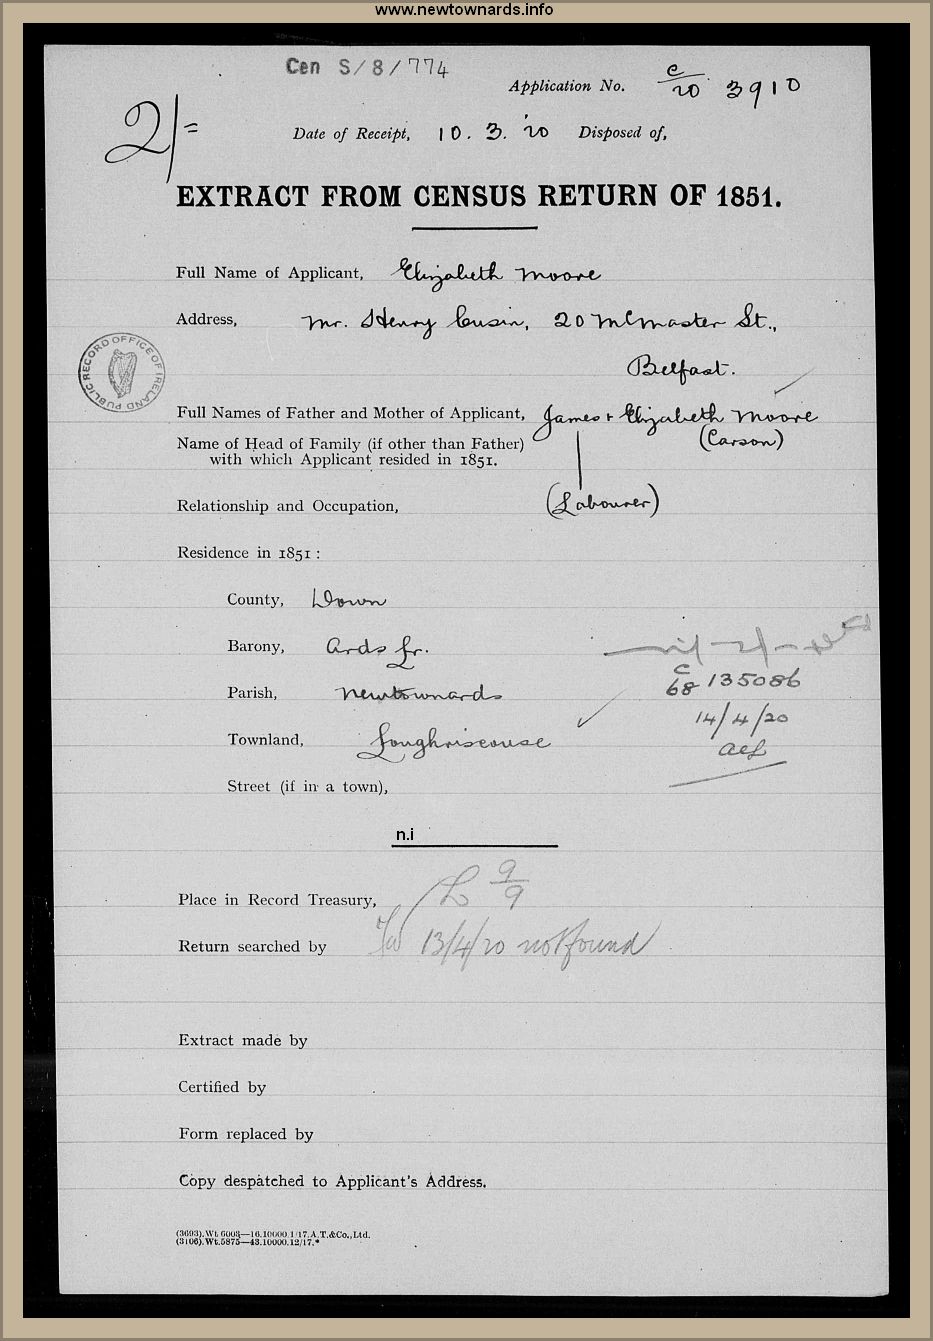 www.newtownards.info
Cen S/8/774
Application No. C/20 3910
2/=
Date of Receipt, 10.3.'20 Disposed of,
EXTRACT FROM CENSUS RETURN OF 1851.
Full Name of Applicant, Elizabeth Moore
Address, Mr. Henry Cusin, 20 McMaster St.,
Belfast.
PUBLIC RECORD OFFICE OF IRELAND
Full Names of Father and Mother of Applicant, James & Elizabeth Moore
(Carson)
Name of Head of Family (if other than Father)
with which Applicant resided in 1851.
Relationship and Occupation, (Labourer)
Residence in 1851 :
County, Down
Barony, Ards Lr.
Parish, Newtownards
C/68 135086
14/4/20
Townland, Loughriscouse
Street (if in a town),
n.i
Place in Record Treasury, L 9/9
Return searched by 13/4/20 not found
Extract made by
Certified by
Form replaced by
Copy despatched to Applicant's Address.
(3693).Wt.6003—16.10000.1/17.A.T.&Co.,Ltd.
(3106).Wt.5875—43.10000.12/17.*